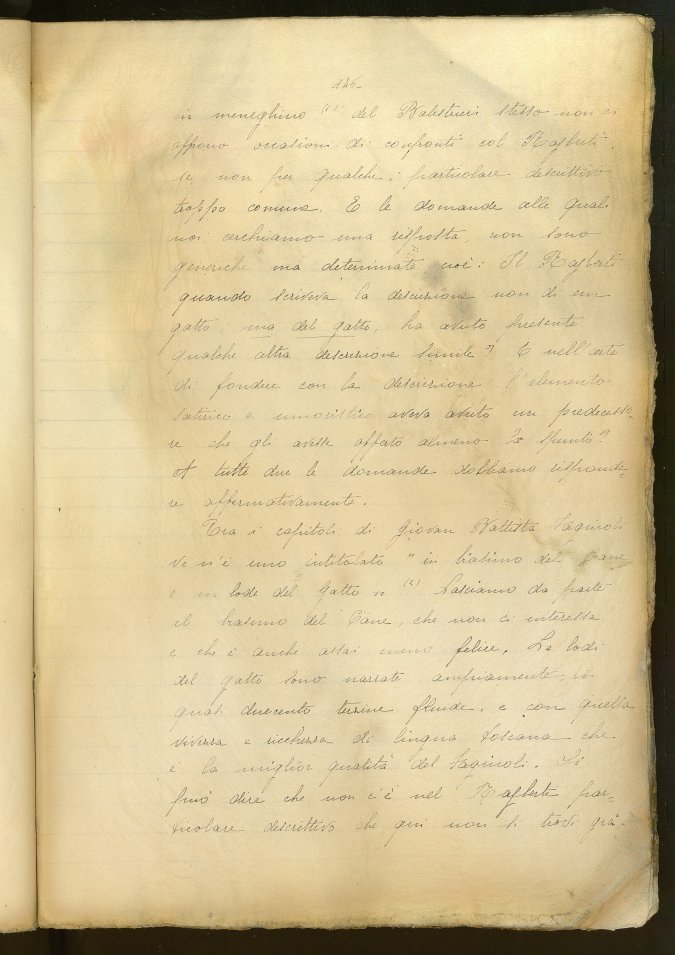 146-
in meneghino (1) del Balestrieri stesso non ci
offrono occasioni di confronti col Raiberti,
se non per qualche particolare descrittivo
troppo comune. E le domande alle quali
noi cerchiamo una risposta, non sono
generiche ma determinate cioè: Il Raiberti
quando scriveva la descrizione non di un
gatto, ma del gatto, ha avuto presente
qualche altra descrizione simile? E nell'arte
di fondere con la descrizione l'elemento
satirico e umoristico aveva avuto un predecesso-
re che gli avesse offerto almeno lo spunto?
A tutte due le domande dobbiamo risponde-
re affermativamente.
Tra i capitoli di Giovan Battista Fagiuoli
ve n'è uno intitolato "in biasimo del Cane
e in lode del Gatto" (2) Lasciamo da parte
il biasimo del Cane, che non ci interessa
e che è anche assai meno felice. Le lodi
del gatto sono narrate ampiamente, in
quasi duecento terzine fluide, e con quella
vivezza e ricchezza di lingua toscana che
è la miglior qualità del Fagiuoli. Si
può dire che non c'è nel Raiberti par-
ticolare descrittivo che qui non si trovi già.